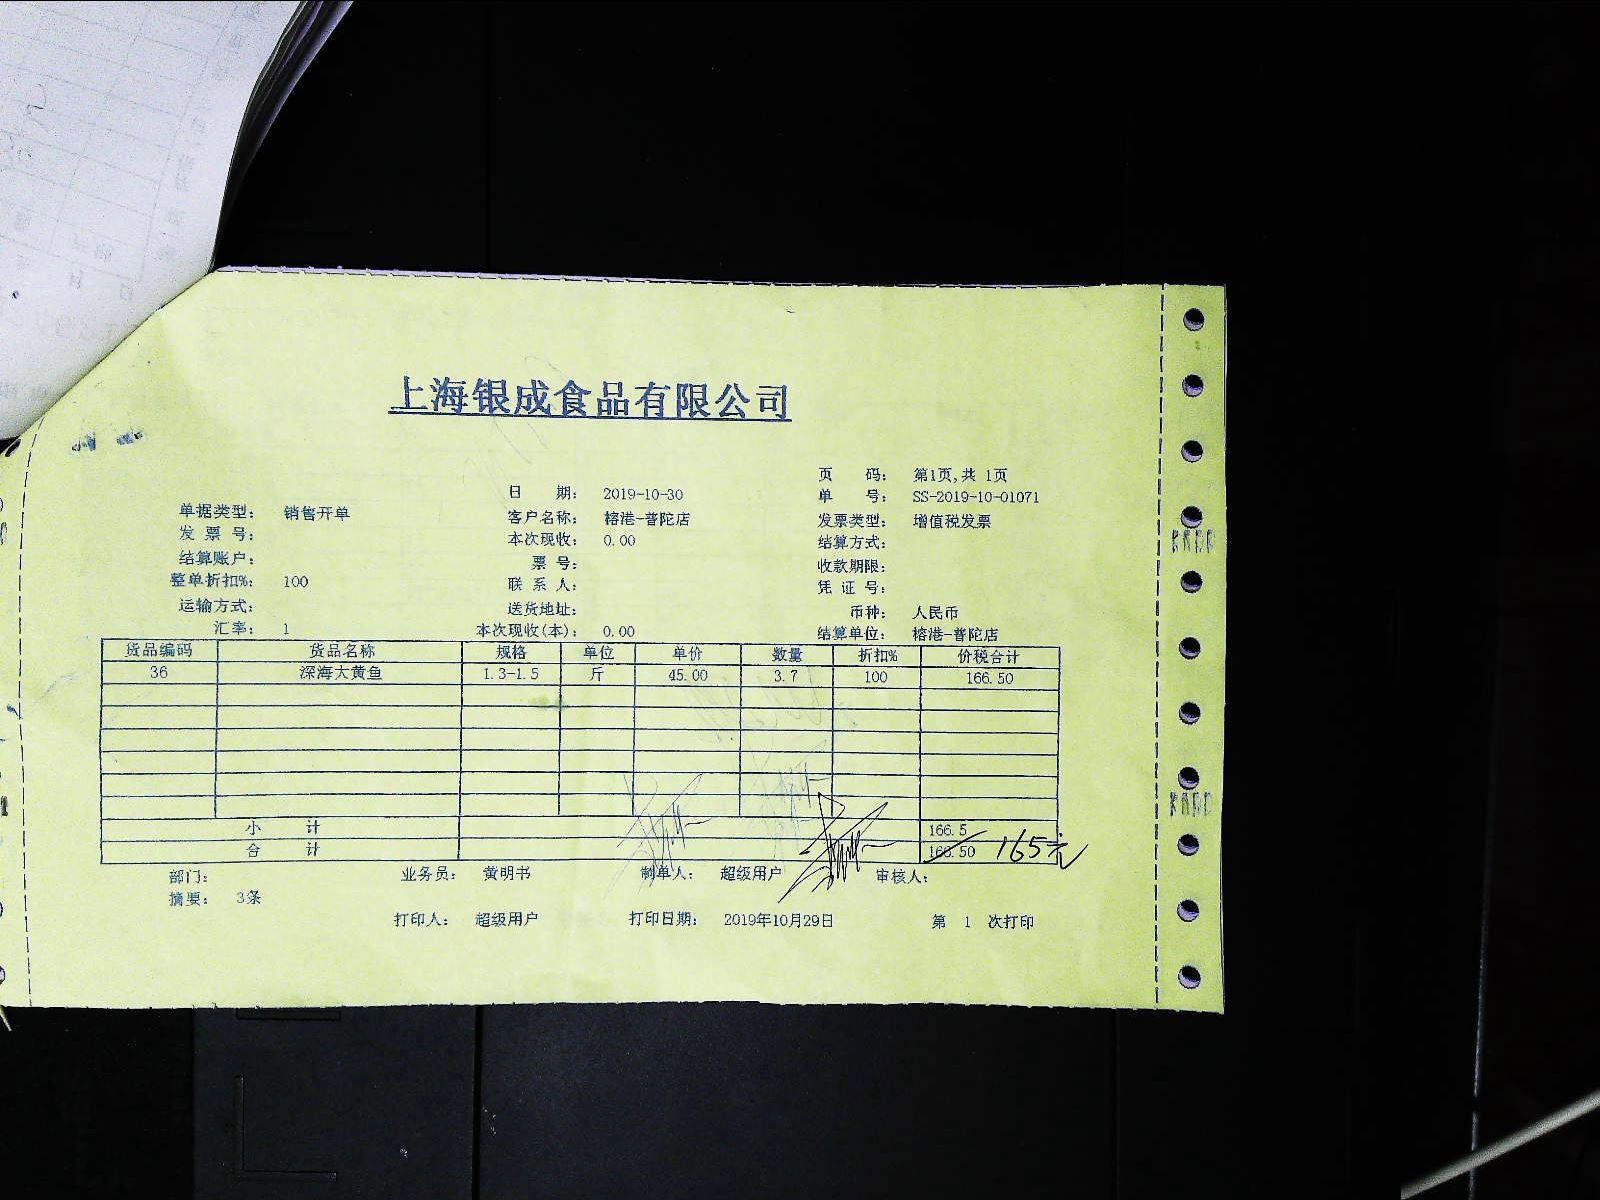 上海银成食品有限公司
页 码： 第1页,共 1页
日 期： 2019-10-30 单 号： SS-2019-10-01071
单据类型： 销售开单 客户名称： 榕港-普陀店 发票类型： 增值税发票
发 票 号： 本次现收： 0.00 结算方式：
结算账户： 票 号： 收款期限：
整单折扣%： 100 联 系 人： 凭 证 号：
运输方式： 送货地址： 币种： 人民币
汇率： 1 本次现收(本)： 0.00 结算单位： 榕港-普陀店
货品编码 货品名称 规格 单位 单价 数量 折扣% 价税合计
36 深海大黄鱼 1.3-1.5 斤 45.00 3.7 100 166.50
小 计 166.5
合 计 166.50 165元
部门： 业务员： 黄明书 制单人： 超级用户 审核人：
摘要： 3条
打印人： 超级用户 打印日期： 2019年10月29日 第 1 次打印